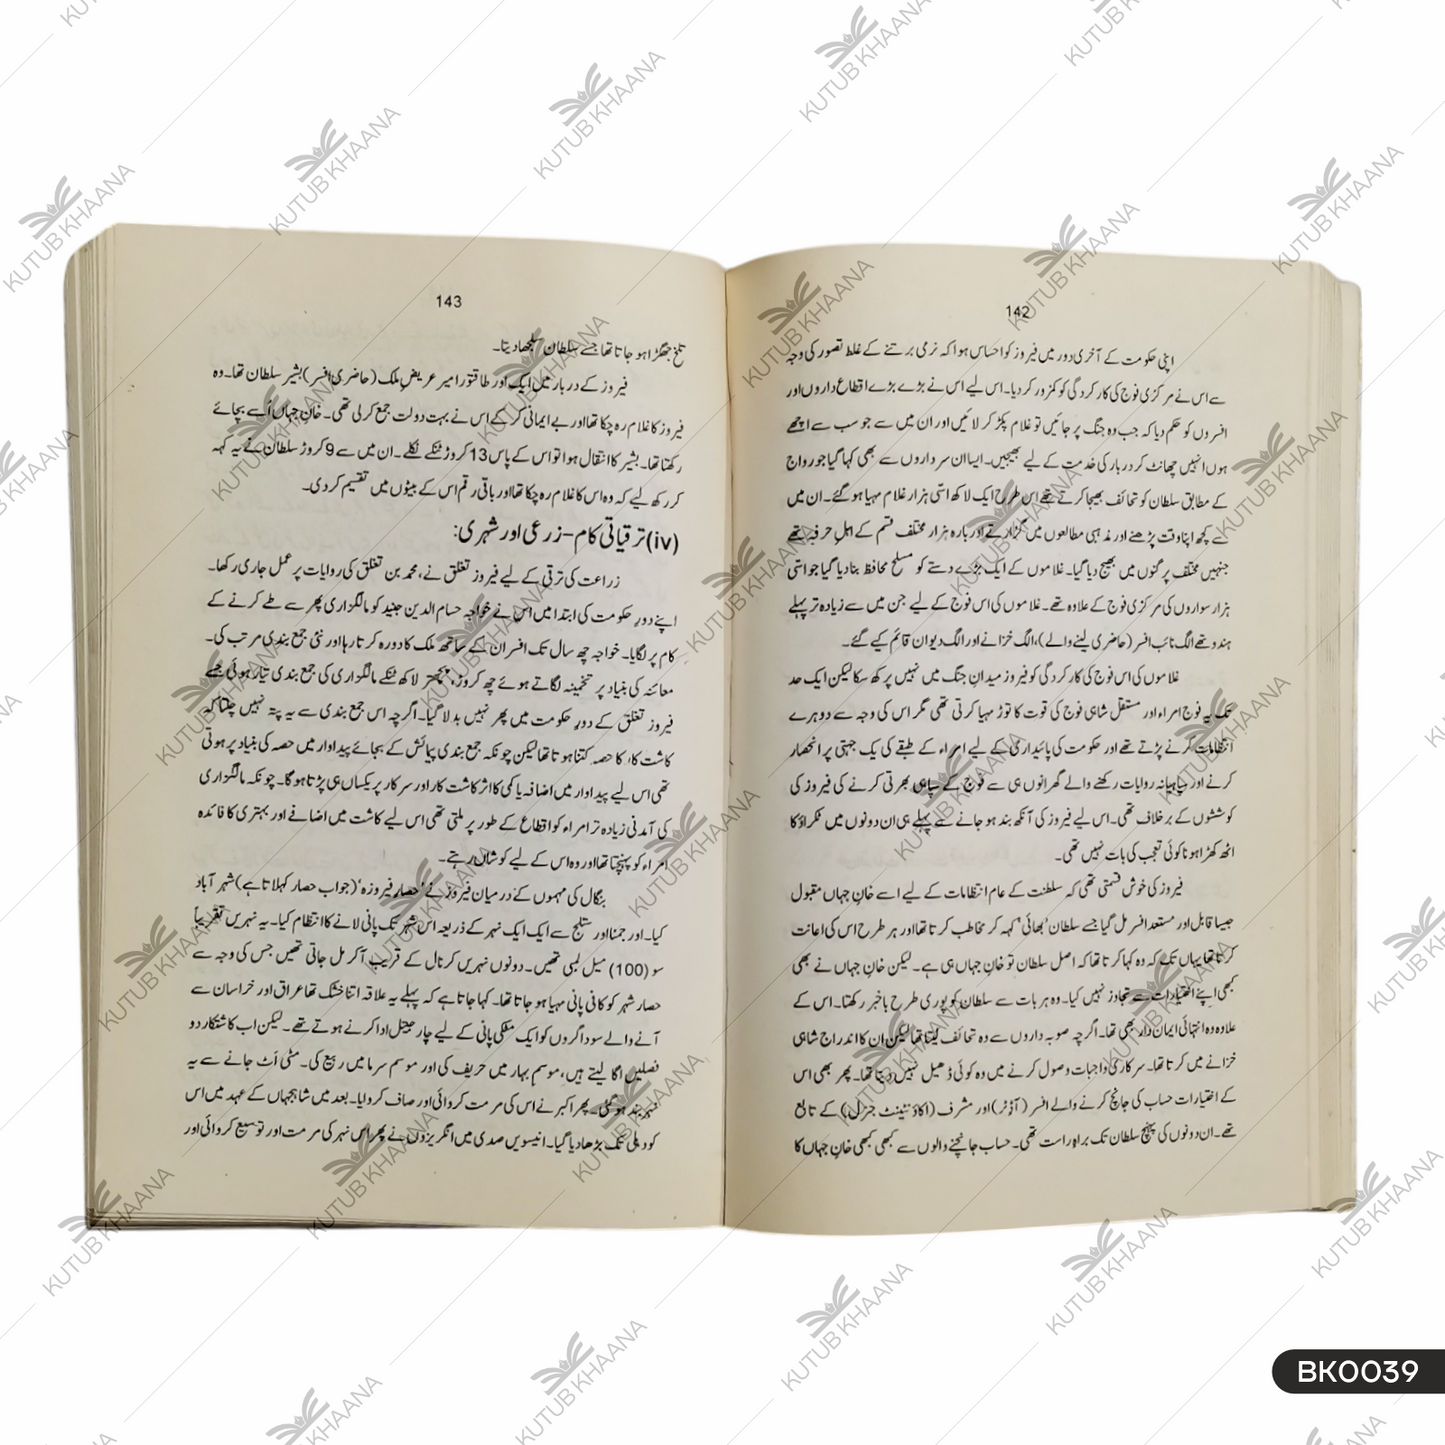 142
اپنی حکومت کے آخری دور میں فیروز کو احساس ہوا کہ نرمی برتنے کے غلط تصور کی وجہ
سے اس نے مرکزی فوج کی کارکردگی کو کمزور کر دیا۔ اس لیے اس نے بڑے بڑے اقطاع داروں اور
افسروں کو حکم دیا کہ جب وہ جنگ پر جائیں تو غلام پکڑ کر لائیں اور ان میں سے جو سب سے اچھے
ہوں انہیں چھانٹ کر دربار کی خدمت کے لیے بھیجیں۔ ایسا ان سرداروں سے بھی کہا گیا جو رواج
کے مطابق سلطان کو تحائف بھیجا کرتے تھے اس طرح ایک لاکھ اسّی ہزار غلام مہیا ہو گئے۔ ان میں
سے کچھ اپنا وقت پڑھنے اور مذہبی مطالعوں میں گزارتے اور بارہ ہزار مختلف قسم کے اہلِ حرفہ تھے
جنہیں مختلف پرگنوں میں بھیج دیا گیا۔ غلاموں کے ایک بڑے دستے کو مسلح محافظ بنا دیا گیا جو اسّی
ہزار سواروں کی مرکزی فوج کے علاوہ تھے۔ غلاموں کی اس فوج کے لیے جن میں سے زیادہ تر پہلے
ہندو تھے الگ نائب افسر (حاضری لینے والے)، الگ خزانے اور الگ دیوان قائم کیے گئے۔
غلاموں کی اس فوج کی کارکردگی کو فیروز میدانِ جنگ میں نہیں پرکھ سکا لیکن ایک حد
تک یہ فوج امراء اور مستقل شاہی فوج کی قوت کا توڑ مہیا کرتی تھی مگر اس کی وجہ سے دوہرے
انتظامات کرنے پڑتے تھے اور حکومت کی پائیداری کے لیے امراء کے طبقے کی یک جہتی پر انحصار
کرنے اور سپاہیانہ روایات رکھنے والے گھرانوں ہی سے فوج کے سپاہی بھرتی کرنے کی فیروز کی
کوششوں کے برخلاف تھی۔ اس لیے فیروز کی آنکھ بند ہو جانے سے پہلے ہی ان دونوں میں ٹکراؤ کا
اٹھ کھڑا ہونا کوئی تعجب کی بات نہیں تھی۔
فیروز کی خوش قسمتی تھی کہ سلطنت کے عام انتظامات کے لیے اسے خانِ جہاں مقبول
جیسا قابل اور مستعد افسر مل گیا جسے سلطان 'بھائی' کہہ کر مخاطب کرتا تھا اور ہر طرح اس کی اعانت
کرتا تھا یہاں تک کہ وہ کہا کرتا تھا کہ اصل سلطان تو خانِ جہاں ہی ہے۔ لیکن خانِ جہاں نے بھی
کبھی اپنے اختیارات سے تجاوز نہیں کیا۔ وہ ہر بات سے سلطان کو پوری طرح باخبر رکھتا۔ اس کے
علاوہ وہ انتہائی ایمان دار بھی تھا۔ اگرچہ صوبہ داروں سے وہ تحائف لیتا تھا لیکن ان کا اندراج شاہی
خزانے میں کرتا تھا۔ سرکاری واجبات وصول کرنے میں وہ کوئی ڈھیل نہیں دیتا تھا۔ پھر بھی اس
کے اختیارات حساب کی جانچ کرنے والے افسر (آڈٹر) اور مشرف (اکاؤنٹینٹ جنرل) کے تابع
تھے۔ ان دونوں کی پہنچ سلطان تک براہِ راست تھی۔ حساب جانچنے والوں سے کبھی کبھی خانِ جہاں کا
143
تلخ جھگڑا ہو جاتا تھا جسے سلطان سلجھا دیتا۔
فیروز کے دربار میں ایک اور طاقتور امیر عریضِ ملک (حاضری افسر) بشیر سلطان تھا۔ وہ
فیروز کا غلام رہ چکا تھا اور بے ایمانی کر کے اس نے بہت دولت جمع کر لی تھی۔ خانِ جہاں اُسے بچائے
رکھتا تھا۔ بشیر کا انتقال ہوا تو اس کے پاس 13 کروڑ ٹنکے نکلے۔ ان میں سے 9 کروڑ سلطان نے یہ کہہ
کر رکھ لیے کہ وہ اس کا غلام رہ چکا تھا اور باقی رقم اس کے بیٹوں میں تقسیم کر دی۔
(iv) ترقیاتی کام—زرعی اور شہری:
زراعت کی ترقی کے لیے فیروز تغلق نے، محمد بن تغلق کی روایات پر عمل جاری رکھا۔
اپنے دورِ حکومت کی ابتدا میں اس نے خواجہ حسام الدین جنید کو مالگزاری پھر سے طے کرنے کے
کام پر لگایا۔ خواجہ چھ سال تک افسران کے ساتھ ملک کا دورہ کرتا رہا اور نئی جمع بندی مرتب کی۔
معائنہ کی بنیاد پر تخمینہ لگاتے ہوئے چھ کروڑ، پچھتر لاکھ ٹنکے مالگزاری کی جمع بندی تیار ہوئی جسے
فیروز تغلق کے دورِ حکومت میں پھر نہیں بدلا گیا۔ اگرچہ اس جمع بندی سے یہ پتہ نہیں چلتا کہ
کاشت کار کا حصہ کتنا ہوتا تھا لیکن چونکہ جمع بندی پیمائش کے بجائے پیداوار میں حصہ کی بنیاد پر ہوتی
تھی اس لیے پیداوار میں اضافہ یا کمی کا اثر کاشت کار اور سرکار پر یکساں ہی پڑتا ہوگا۔ چونکہ مالگزاری
کی آمدنی زیادہ تر امراء کو اقطاع کے طور پر ملتی تھی اس لیے کاشت میں اضافے اور بہتری کا فائدہ
امراء کو پہنچتا تھا اور وہ اس کے لیے کوشاں رہتے۔
بنگال کی مہموں کے درمیان فیروز نے 'حصارِ فیروزہ' (جو اب حصار کہلاتا ہے) شہر آباد
کیا۔ اور جمنا اور ستلج سے ایک ایک نہر کے ذریعہ اس شہر تک پانی لانے کا انتظام کیا۔ یہ نہریں تقریباً
سو (100) میل لمبی تھیں۔ دونوں نہریں کرنال کے قریب آ کر مل جاتی تھیں جس کی وجہ سے
حصار شہر کو کافی پانی مہیا ہو جاتا تھا۔ کہا جاتا ہے کہ پہلے یہ علاقہ اتنا خشک تھا عراق اور خراسان سے
آنے والے سوداگروں کو ایک مٹکی پانی کے لیے چار جیتل ادا کرنے ہوتے تھے۔ لیکن اب کاشتکار دو
فصلیں اگا لیتے ہیں، موسم بہار میں خریف کی اور موسم سرما میں ربیع کی۔ مٹی اَٹ جانے سے یہ
نہر بند ہو گئی۔ پھر اکبر نے اس کی مرمت کروائی اور صاف کروایا۔ بعد میں شاہجہاں کے عہد میں اس
کو دہلی تک بڑھا دیا گیا۔ انیسویں صدی میں انگریزوں نے پھر اس نہر کی مرمت اور توسیع کروائی اور
KUTUB KHAANA
BK0039